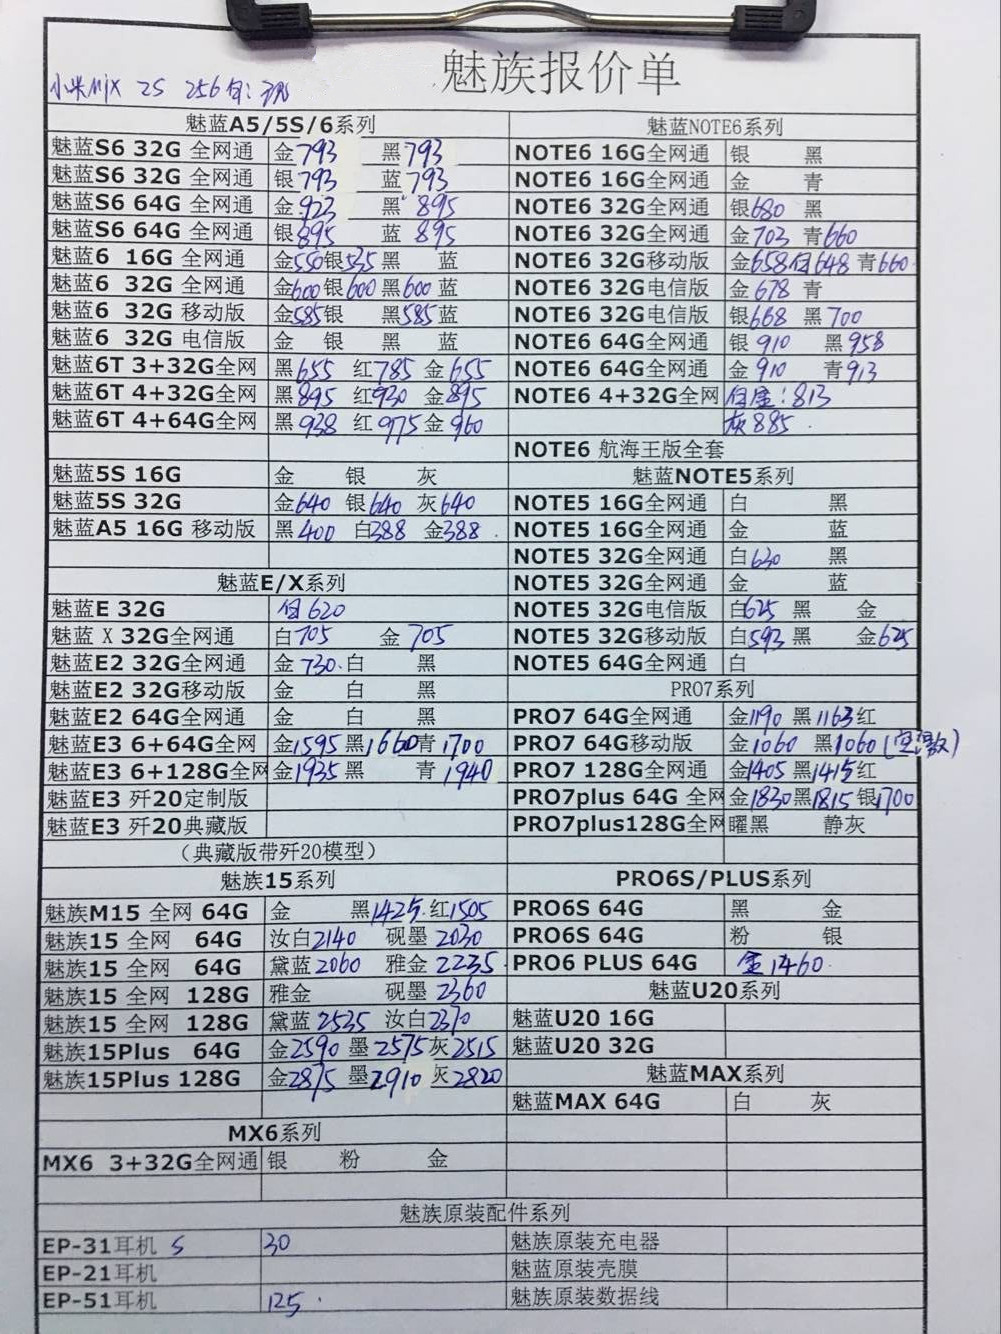 魅族报价单
小米MIX 2S 256白:
魅蓝A5/5S/6系列
魅蓝S6 32G 全网通 金793 黑793
魅蓝S6 32G 全网通 银793 蓝793
魅蓝S6 64G 全网通 金923 黑895
魅蓝S6 64G 全网通 银895 蓝895
魅蓝6 16G 全网通 金550银535黑 蓝
魅蓝6 32G 全网通 金600银600黑600蓝
魅蓝6 32G 移动版 金585银 黑585蓝
魅蓝6 32G 电信版 金 银 黑 蓝
魅蓝6T 3+32G全网 黑655 红785 金655
魅蓝6T 4+32G全网 黑895 红920 金895
魅蓝6T 4+64G全网 黑938 红975金960
魅蓝5S 16G 金 银 灰
魅蓝5S 32G 金640 银640 灰640
魅蓝A5 16G 移动版 黑400 白388 金388
魅蓝E/X系列
魅蓝E 32G 白620
魅蓝 X 32G全网通 白705 金705
魅蓝E2 32G全网通 金730 白 黑
魅蓝E2 32G移动版 金 白 黑
魅蓝E2 64G全网通 金 白 黑
魅蓝E3 6+64G全网 金1595黑1660青1700
魅蓝E3 6+128G全网 金1935黑 青1940
魅蓝E3 歼20定制版
魅蓝E3 歼20典藏版
（典藏版带歼20模型）
魅族15系列
魅族M15 全网 64G 金 黑1425 红1505
魅族15 全网 64G 汝白2140 砚墨2030
魅族15 全网 64G 黛蓝2060 雅金2235
魅族15 全网 128G 雅金 砚墨2360
魅族15 全网 128G 黛蓝2535 汝白2370
魅族15Plus 64G 金2590 墨2575灰2515
魅族15Plus 128G 金2875 墨2910 灰2820
MX6系列
MX6 3+32G全网通 银 粉 金
魅蓝NOTE6系列
NOTE6 16G全网通 银 黑
NOTE6 16G全网通 金 青
NOTE6 32G全网通 银680 黑
NOTE6 32G全网通 金703 青660
NOTE6 32G移动版 金658白648青660
NOTE6 32G电信版 金678 青
NOTE6 32G电信版 银668 黑700
NOTE6 64G全网通 银910 黑958
NOTE6 64G全网通 金910 青913
NOTE6 4+32G全网 :813
灰885
NOTE6 航海王版全套
魅蓝NOTE5系列
NOTE5 16G全网通 白 黑
NOTE5 16G全网通 金 蓝
NOTE5 32G全网通 白630 黑
NOTE5 32G全网通 金 蓝
NOTE5 32G电信版 白625 黑 金
NOTE5 32G移动版 白593黑 金625
NOTE5 64G全网通 白
PRO7系列
PRO7 64G全网通 金1190 黑1163红
PRO7 64G移动版 金1060 黑1060
PRO7 128G全网通 金1405黑1415红
PRO7plus 64G 全网 金1830黑1815银1700
PRO7plus128G全网 曜黑 静灰
PRO6S/PLUS系列
PRO6S 64G 黑 金
PRO6S 64G 粉 银
PRO6 PLUS 64G 金1460
魅蓝U20系列
魅蓝U20 16G
魅蓝U20 32G
魅蓝MAX系列
魅蓝MAX 64G 白 灰
魅族原装配件系列
EP-31耳机 S 30 魅族原装充电器
EP-21耳机 魅蓝原装壳膜
EP-51耳机 125 魅族原装数据线